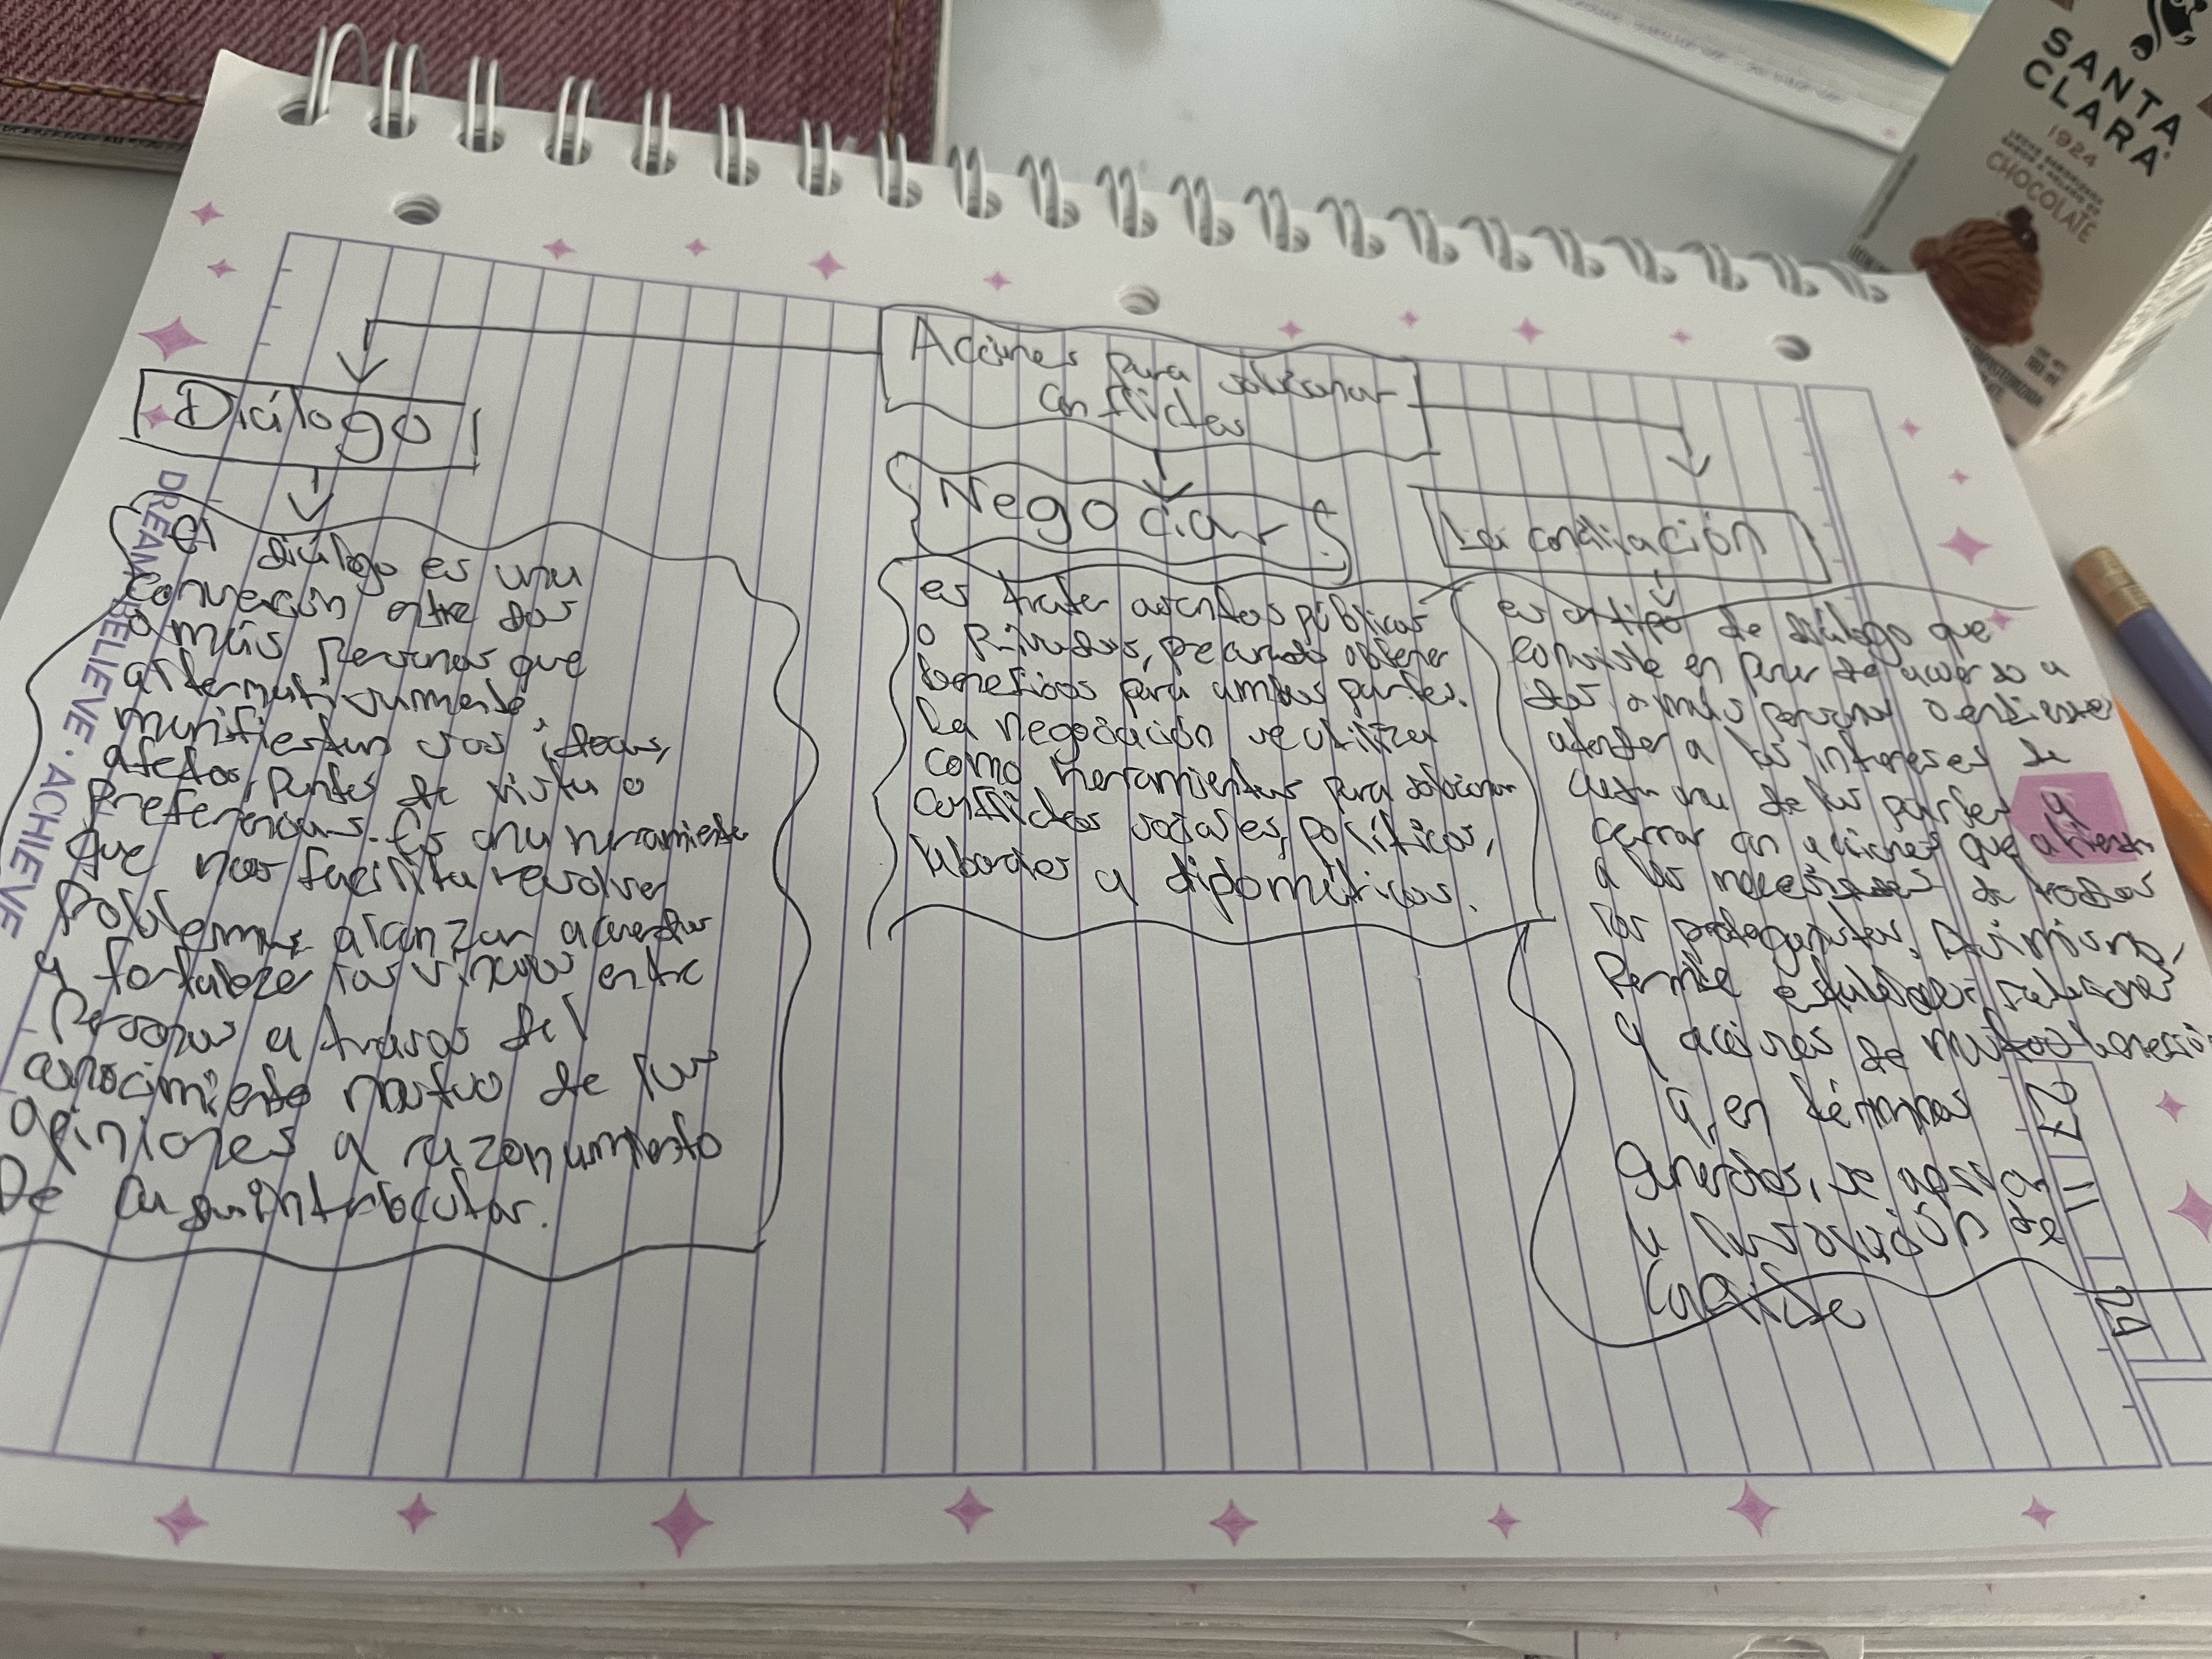 SANTA
CLARA
1924
CHOCOLATE
Acciones para solucionar
Conflictos
Diálogo
El diálogo es una
conversación entre dos
o más personas que
alternativamente
manifiestan sus ideas,
afectos, puntos de vista o
preferencias. Es una herramienta
que nos facilita resolver
Problemas, alcanzar acuerdos
y fortalecer los vínculos entre
Personas a través del
conocimiento mutuo de las
opiniones y razonamiento
De
Negociar
es tratar asuntos públicos
o Privados, procurando obtener
beneficios para ambas partes.
La negociación se utiliza
como herramientas para solucionar
conflictos sociales, políticos,
laborales y diplomáticos.
La conciliación
es un tipo de diálogo que
consiste en poner de acuerdo a
dos o más personas o entidades
atender a los intereses de
cada una de las partes y
cerrar con acciones que atiendan
a las necesidades de todos
los protagonistas. Asimismo,
Permite establecer relaciones
y acciones de mutuo beneficio
y, en términos
Generales, se apoya
la resolución de
DREAM · BELIEVE · ACHIEVE
27
11
24